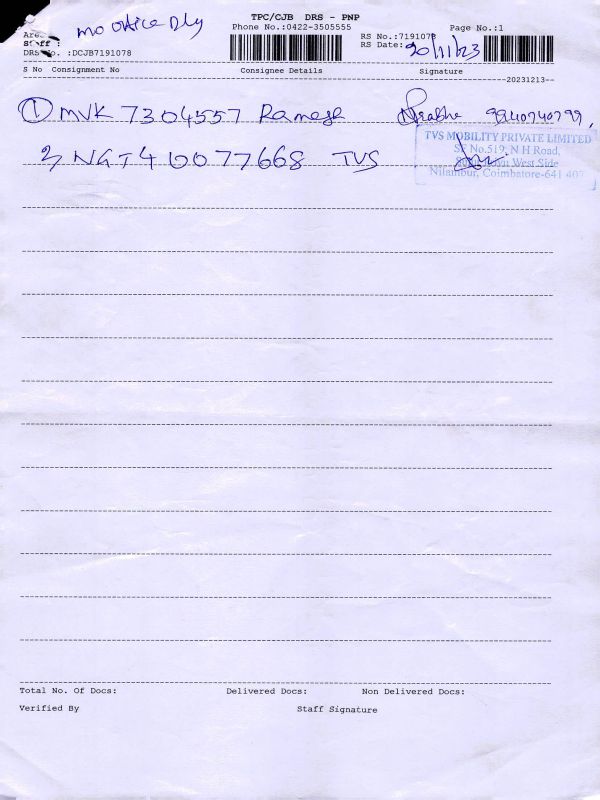 mo office Dly
TPC/CJB DRS - PNP
Phone No.:0422-3505555
Page No.:1
RS No.:7191078
RS Date: 20/11/23
Staff :
DRS No. :DCJB7191078
S No Consignment No Consignee Details Signature
20231213
1 MVK 7304557 Ramesh Prabhu 9940740799,
2, NGT40077668 TVS
TVS MOBILITY PRIVATE LIMITED
SF No.519, N H Road,
West Side
Nilambur, Coimbatore-641 407
Total No. Of Docs: Delivered Docs: Non Delivered Docs:
Verified By Staff Signature